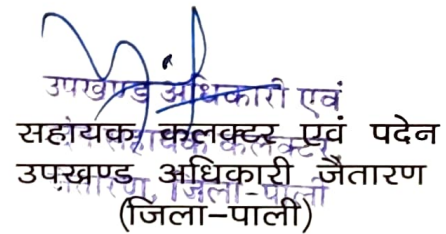 उपखण्ड अधिकारी एवं
सहायक कलक्टर एवं पदेन
उपखण्ड अधिकारी जैतारण
जैतारण, जिला-पाली
(जिला-पाली)